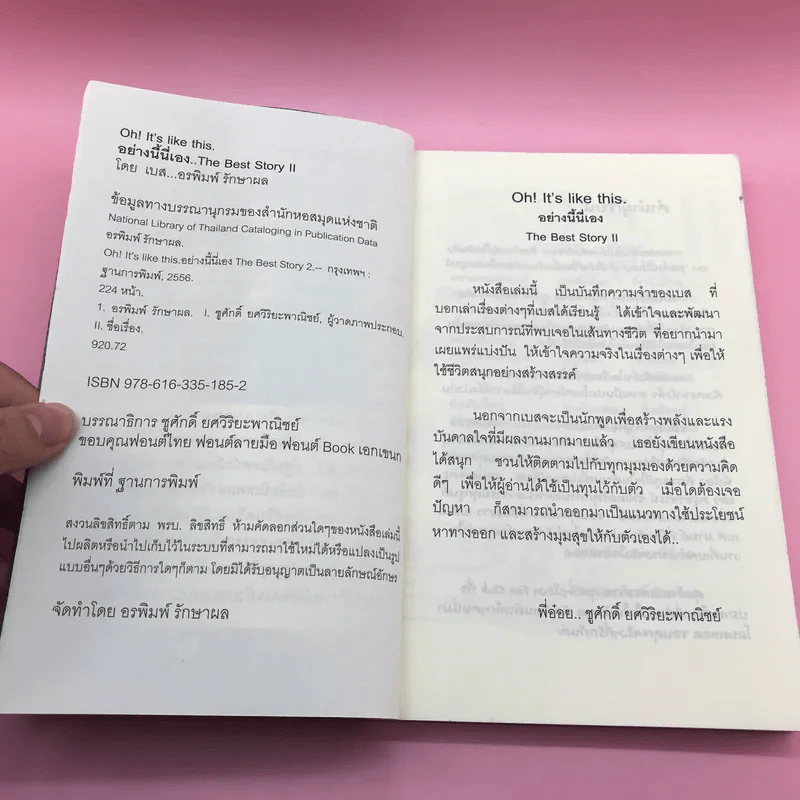 Oh! It's like this.
อย่างนี้นี่เอง..The Best Story II
โดย เบส...อรพิมพ์ รักษาผล
ข้อมูลทางบรรณานุกรมของสำนักหอสมุดแห่งชาติ
National Library of Thailand Cataloging in Publication Data
อรพิมพ์ รักษาผล.
Oh! It's like this.อย่างนี้นี่เอง The Best Story 2.-- กรุงเทพฯ :
ฐานการพิมพ์, 2556.
224 หน้า.
1. อรพิมพ์ รักษาผล. I. ชูศักดิ์ ยศวิริยะพาณิชย์, ผู้วาดภาพประกอบ.
II. ชื่อเรื่อง.
920.72
ISBN 978-616-335-185-2
บรรณาธิการ ชูศักดิ์ ยศวิริยะพาณิชย์
ขอบคุณฟอนต์ไทย ฟอนต์ลายมือ ฟอนต์ Book เอกเขนก
พิมพ์ที่ ฐานการพิมพ์
สงวนลิขสิทธิ์ตาม พรบ. ลิขสิทธิ์ ห้ามคัดลอกส่วนใดๆของหนังสือเล่มนี้
ไปผลิตหรือนำไปเก็บไว้ในระบบที่สามารถมาใช้ใหม่ได้หรือแปลงเป็นรูป
แบบอื่นๆด้วยวิธีการใดๆก็ตาม โดยมิได้รับอนุญาตเป็นลายลักษณ์อักษร
จัดทำโดย อรพิมพ์ รักษาผล
Oh! It's like this.
อย่างนี้นี่เอง
The Best Story II
หนังสือเล่มนี้ เป็นบันทึกความจำของเบส ที่
บอกเล่าเรื่องต่างๆที่เบสได้เรียนรู้ ได้เข้าใจและพัฒนา
จากประสบการณ์ที่พบเจอในเส้นทางชีวิต ที่อยากนำมา
เผยแพร่แบ่งปัน ให้เข้าใจความจริงในเรื่องต่างๆ เพื่อให้
ใช้ชีวิตสนุกอย่างสร้างสรรค์
นอกจากเบสจะเป็นนักพูดเพื่อสร้างพลังและแรง
บันดาลใจที่มีผลงานมากมายแล้ว เธอยังเขียนหนังสือ
ได้สนุก ชวนให้ติดตามไปกับทุกมุมมองด้วยความคิด
ดีๆ เพื่อให้ผู้อ่านได้ใช้เป็นทุนไว้กับตัว เมื่อใดต้องเจอ
ปัญหา ก็สามารถนำออกมาเป็นแนวทางใช้ประโยชน์
หาทางออก และสร้างมุมสุขให้กับตัวเองได้..
พี่อ๋อย.. ชูศักดิ์ ยศวิริยะพาณิชย์